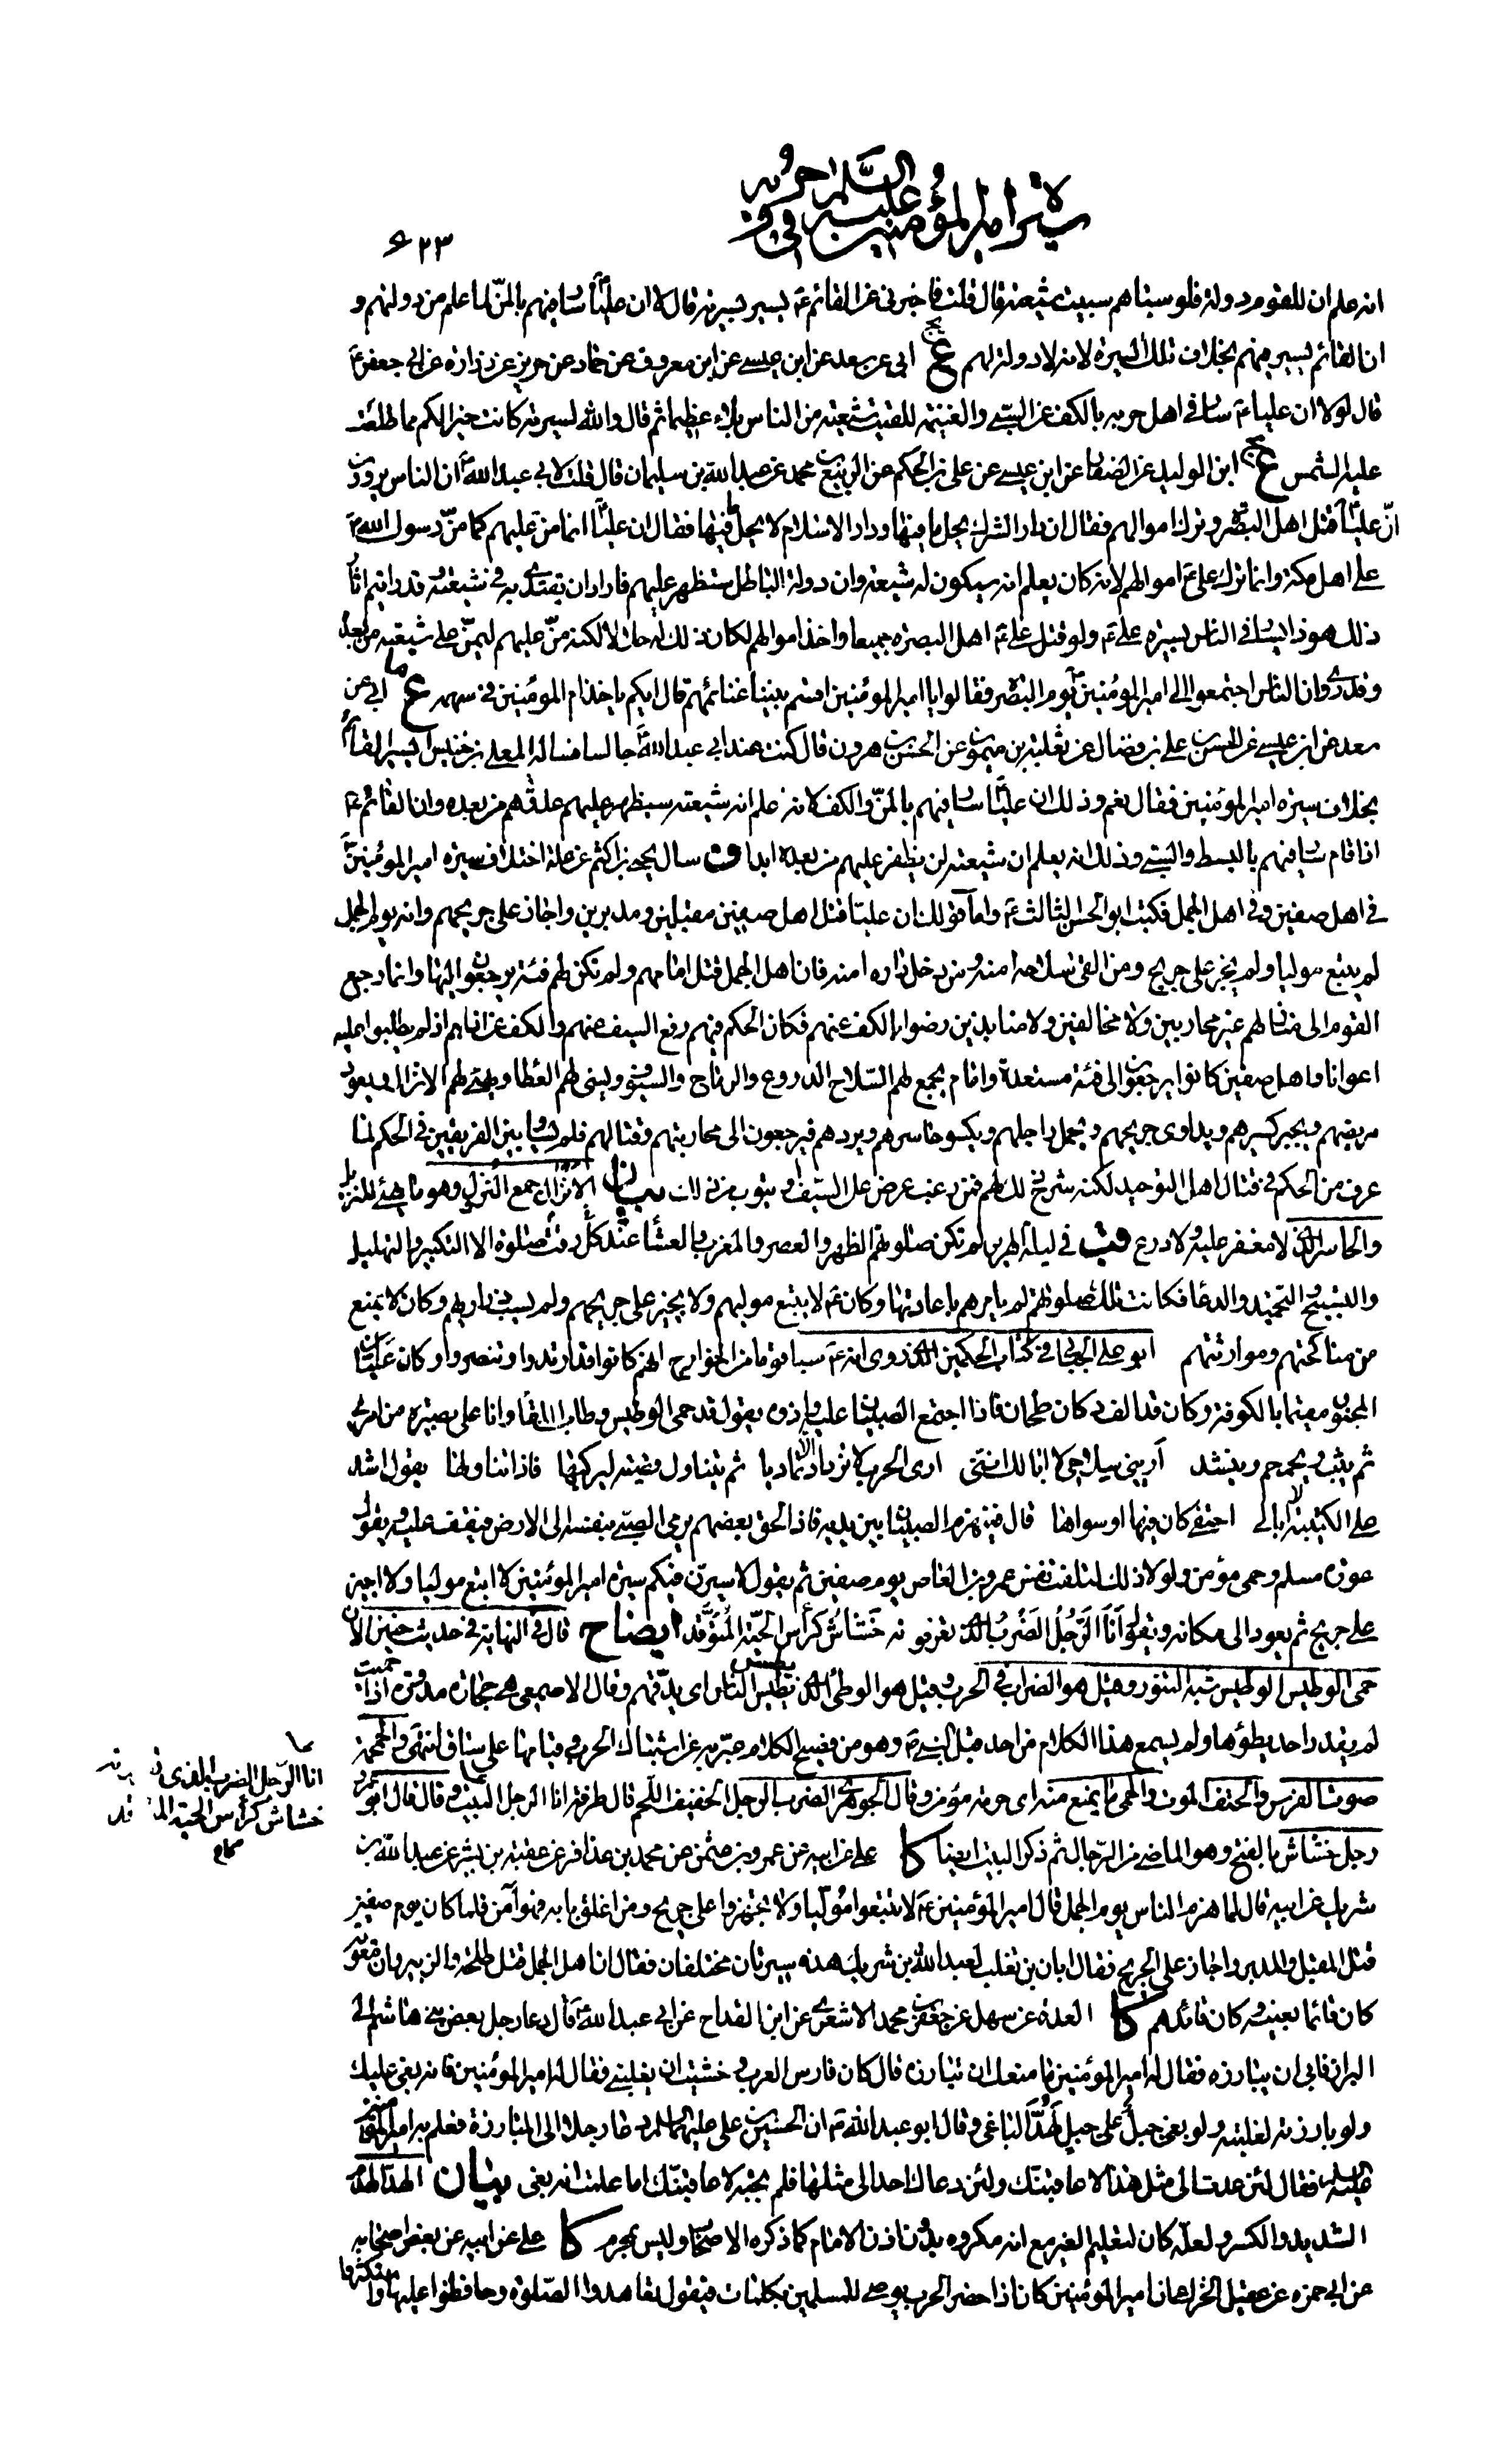 سيرة امير المؤمنين عليه السلم في حروبه
٦٢٣
انه علم ان للقوم دولة فلو سباهم سبيت شيعته قال قلت فاخبرني عن القائم ع يسير بسيرته قال لا ان عليّا ع سار فيهم بالمنّ لما علم من دولتهم و
ان القائم يسير فيهم بخلاف تلك السيرة لانه لا دولة لهم ع ابي عن سعد عن ابن عيسى عن ابن معروف عن حماد عن حريز عن زرارة عن ابي جعفر ع
قال لولا ان عليا ع سار في اهل حربه بالكف عن السبي والغنيمة للقيت شيعته من الناس بلاء عظيما ثم قال والله لسيرته كانت خيرا لكم مما طلعت
عليه الشمس ع ابن الوليد عن الصفار عن ابن عيسى عن علي بن الحكم عن الربيع بن محمد عن عبد الله بن سليمان قال قلت لابي عبد الله ع ان الناس يروون
انّ عليّا ع قتل اهل البصرة وترك اموالهم فقال ان دار الشرك يحل ما فيها ودار الاسلام لا يحل ما فيها فقال ان عليّا ع انما منّ عليهم كما منّ رسول الله ص
على اهل مكة وانما ترك علي ع اموالهم لانه كان يعلم انه سيكون له شيعة وان دولة الباطل ستظهر عليهم فاراد ان يقتدى به في شيعته وقد رايتم اثار
ذلك هوذا يسار في الناس بسيرة علي ع ولو قتل علي ع اهل البصرة جميعا واخذ اموالهم لكان ذلك له حلالا لكنه منّ عليهم ليمنّ على شيعته من بعده
وقد روي ان الناس اجتمعوا الى امير المؤمنين ع يوم البصرة فقالوا يا امير المؤمنين اقسم بيننا غنائمهم قال ايكم ياخذ ام المؤمنين في سهمه ع ما ابي عن
سعد عن ابن عيسى عن الحسن بن علي بن فضال عن ثعلبة بن ميمون عن الحسن بن هرون قال كنت عند ابي عبد الله ع جالسا فساله المعلى بن خنيس ايسير القائم
بخلاف سيرة امير المؤمنين فقال نعم وذلك ان عليّا ع سار فيهم بالمنّ والكف لانه علم ان شيعته سيظهر عليهم عدوهم من بعده وان القائم ع
اذا قام سار فيهم بالبسط والسبي وذلك انه يعلم ان شيعته لن يظهر عليهم من بعده ابدا ف سال يحيى بن اكثم عن علة اختلاف سيرة امير المؤمنين ع
في اهل صفين وفي اهل الجمل فكتب ابو الحسن الثالث ع واما قولك ان عليا قتل اهل صفين مقبلين ومدبرين واجاز على جريحهم وانه يوم الجمل
لم يتبع موليا ولم يجز على جريح ومن القى سلاحه امنه ومن دخل داره امنه فان اهل الجمل قتل امامهم ولم تكن لهم فئة يرجعون اليها وانما رجع
القوم الى منازلهم غير محاربين ولا مخالفين ولا منابذين رضوا بالكف عنهم فكان الحكم فيهم رفع السيف عنهم والكف عن اذاهم اذ لم يطلبوا عليه
اعوانا واهل صفين كانوا يرجعون الى فئة مستعدة وامام يجمع لهم السلاح الدروع والرماح والسيوف ويسني لهم العطاء ويهيئ لهم الانزال ويعود
مريضهم ويجبر كسيرهم ويداوي جريحهم ويحمل راجلهم ويكسو حاسرهم ويردهم فيرجعون الى محاربتهم وقتالهم فلم يساو بين الفريقين في الحكم لما
عرف من الحكم في قتال اهل التوحيد لكنه شرح ذلك لهم فمن رغب عرض على السيف او يتوب من ذلك بيان الانزال جمع النزل وهو ما يهيئ للنزيل
والحاسر الذي لا مغفر عليه ولا درع قب في ليلة الهرير لم تكن صلوتهم الظهر والعصر والمغرب والعشاء عند كل وقت صلوة الا التكبير والتهليل
والتسبيح والتحميد والدعا فكانت تلك صلوتهم لم يامرهم باعادتها وكان ع لا يتبع موليهم ولا يجيز على جريحهم ولم يسب ذراريهم وكان لا يمنع
من مناكحتهم وموارثتهم ابو علي الجبائي في كتاب الحكمين الذي روى انه ع سبا قوما من الخوارج انهم كانوا قد ارتدوا وتنصروا وكان عليان
المجنون مقيما بالكوفة وكان قد الف دكان طحان فاذا اجتمع الصبيان عليه واذوه يقول قد حمي الوطيس وطاب اللقاء وانا على بصيرة من امري
ثم يثب ويحمحم وينشد اريني سلاحي لا ابا لك انني ارى الحرب لا تزداد الا تماديا ثم يتناول قصبته ليركبها فاذا تناولها يقول اشد
على الكتيبة لا ابالي احتفي كان فيها او سواها قال فينهزم الصبيان بين يديه فاذا لحق بعضهم يرمي الصبي بنفسه الى الارض فيقف عليه ويقول
عورة مسلم وحمى مؤمن ولولا ذلك لتلفت نفس عمرو بن العاص يوم صفين ثم يقول لاسيرن فيكم سيرة امير المؤمنين لا اتبع موليا ولا اجيز
على جريح ثم يعود الى مكانه ويقول اَنَا الرَّجُلُ الضَّرْبُ الذي تعرفونه خَشَاشٌ كرأس الحيّة المُتَوَقِّد ايضاح قال في النهاية في حديث حنين الآن
حمي الوطيس الوطيس شبه التنور وقيل هو الضراب في الحرب وقيل هو الوطئ الذي يطس الناس اي يدقهم وقال الاصمعي هي حجارة مدورة اذا حميت
لم يقدر احد يطؤها ولم يسمع هذا الكلام من احد قبل النبي ص وهو من فصيح الكلام عبّر به عن اشتباك الحرب وقيامها على ساق انتهى والحمحمة
صوت الفرس والحتف الموت والحمى ما يمنع منه اي حرمة مؤمن وقال الجوهري الضرب الرجل الخفيف اللحم قال طرفة انا الرجل البيت وقال قال ابو عمرو
رجل خشاش بالفتح وهو الماضي من الرجال ثم ذكر البيت ايضا كا علي عن ابيه عن عمرو بن عثمن عن محمد بن عذافر عن عقبة بن بشير عن عبد الله بن
شريك عن ابيه قال لما هزم الناس يوم الجمل قال امير المؤمنين ع لا تتبعوا مُوَلّيا ولا تجهزوا على جريح ومن اغلق بابه فهو آمن فلما كان يوم صفين
قتل المقبل والمدبر واجاز على الجريح فقال ابان بن تغلب لعبد الله بن شريك هذه سيرتان مختلفتان فقال ان اهل الجمل قتل طلحة والزبير وان معوية
كان قائما بعينه وكان قائدهم كا العدة عن سهل عن جعفر بن محمد الاشعري عن ابن القداح عن ابي عبد الله ع قال دعا رجل بعض بني هاشم الى
البراز فابى ان يبارزه فقال له امير المؤمنين ما منعك ان تبارزه قال كان فارس العرب وخشيت ان يغلبني فقال له امير المؤمنين فانه بغى عليك
ولو بارزته لغلبته ولو بغى جبل على جبل لَهُدَّ الباغي وقال ابو عبد الله ع ان الحسين بن علي عليهما السلم دعا رجلا الى المبارزة فعلم به امير المؤمنين
عليه السلم فقال لئن عدت الى مثل هذا لاعاقبنّك ولئن دعاك احد الى مثلها فلم تجبه لاعاقبنّك اما علمت انه بغى بيان الهدّ الهدم
الشديد والكسر ولعلّه كان لتعليم الغير مع انه مكروه بدون اذن الامام كما ذكره الاصحاب وليس بمحرم كا علي عن ابيه عن بعض اصحابه
عن ابي حمزة عن عقيل الخزاعي ان امير المؤمنين كان اذا حضر الحرب يوصي للمسلمين بكلمات فيقول تعاهدوا الصّلوة وحافظوا عليها واستكثروا
انا الرّجل الضرب الذي
خشاش كرأس الحية